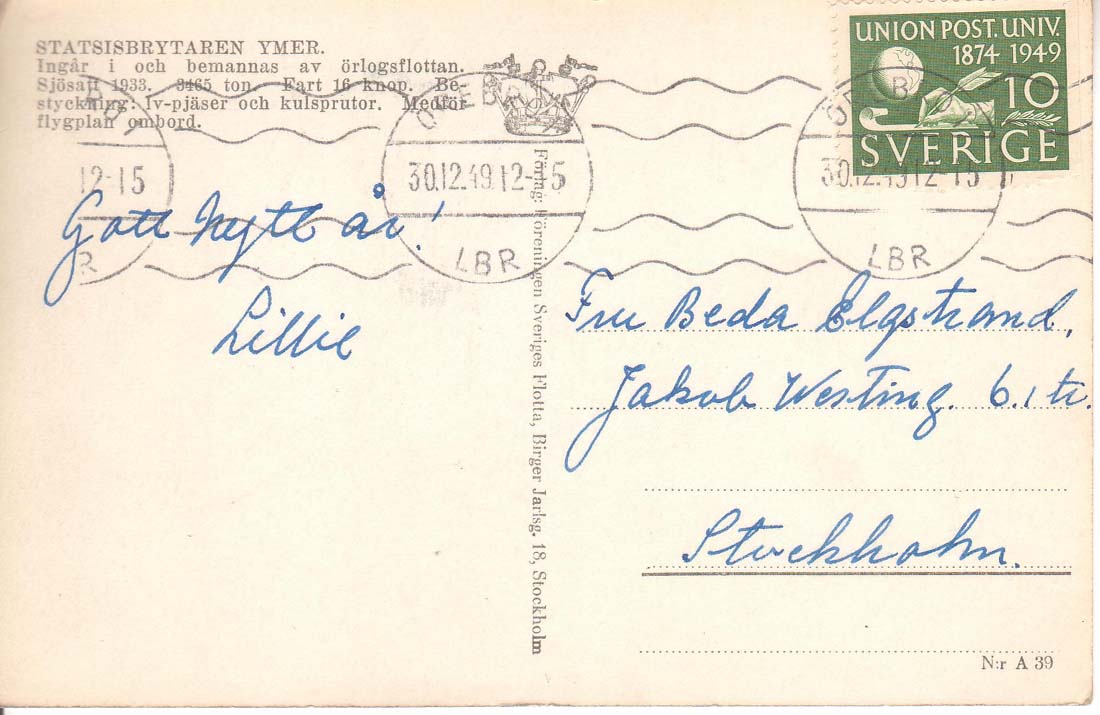 STATSISBRYTAREN YMER.
Ingår i och bemannas av örlogsflottan.
Sjösatt 1933. 3465 ton. Fart 16 knop. Be-
styckning: lv-pjäser och kulsprutor. Medför
flygplan ombord.
UNION POST. UNIV.
1874 1949
10
SVERIGE
12-15
BR
ÖREBRO
30.12.49.12-15
LBR
ÖREBRO
30.12.49.12-15
LBR
Gott Nytt år!
Lillie
Förlag: Föreningen Sveriges Flotta, Birger Jarlsg. 18, Stockholm
Fru Beda Elgstrand,
Jakob Westing. 6. 1 tr.
Stockholm.
N:r A 39